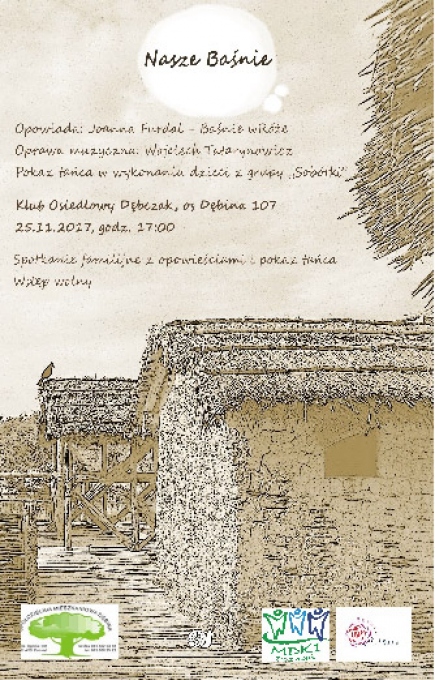 Nasze Baśnie
Opowiada: Joanna Furdal - Baśnie wRóże
Oprawa muzyczna: Wojciech Tatarynowicz
Pokaz tańca w wykonaniu dzieci z grupy „Sobótki”
Klub Osiedlowy Dębczak, os Dębina 107
25.11.2017, godz. 17:00
Spotkanie familijne z opowieściami i pokaz tańca
Wstęp wolny
MDK1